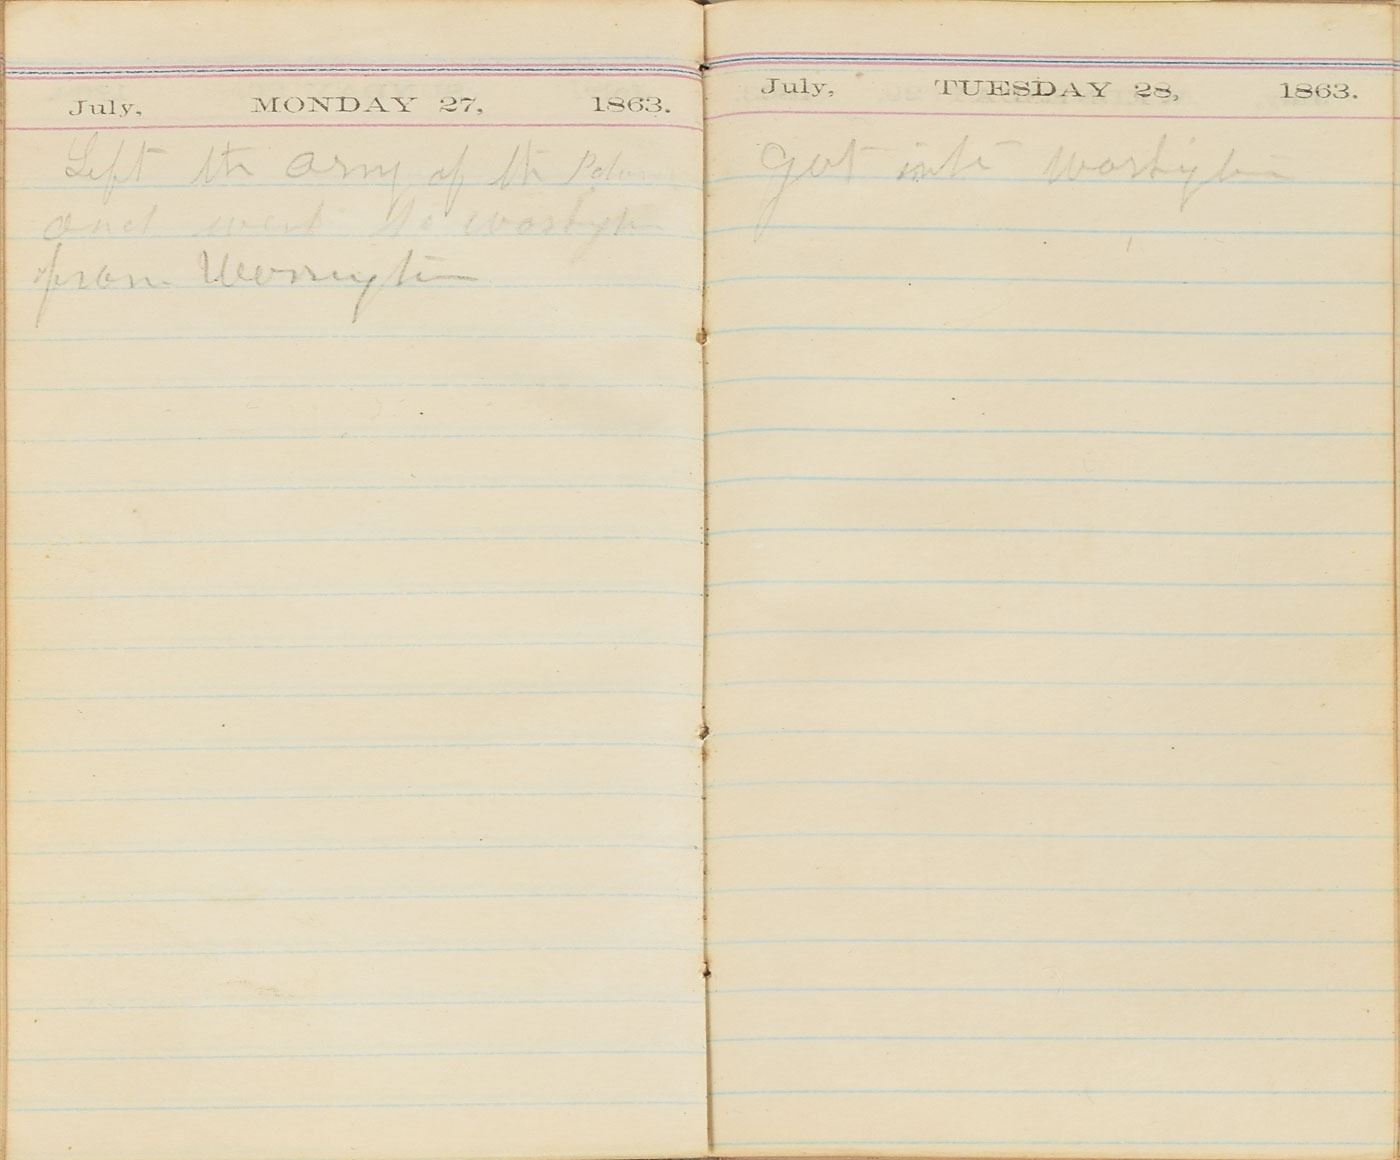 July, MONDAY 27, 1863.
Left the army of the
and went to
from Warrington
July, TUESDAY 28, 1863.
got into Washington